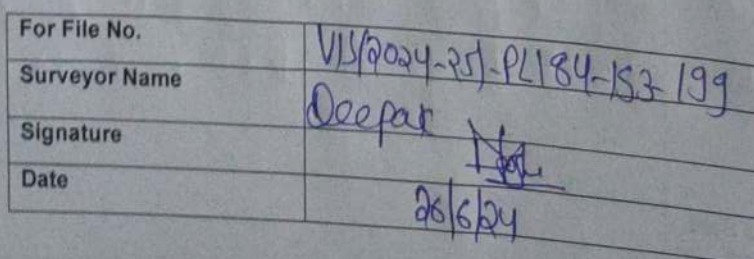 For File No. VIS(2024-25)-PL184-153-199
Surveyor Name Deepak
Signature
Date 26/6/24